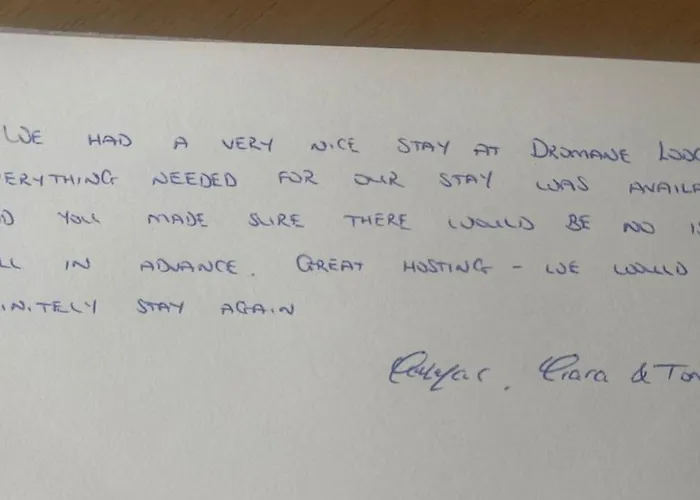 WE HAD A VERY NICE STAY AT DROMANE LODG
ERYTHING NEEDED FOR OUR STAY WAS AVAILA
D YOU MADE SURE THERE WOULD BE NO IS
LL IN ADVANCE. GREAT HOSTING - WE WOULD
INITELY STAY AGAIN
Ciara & Tom